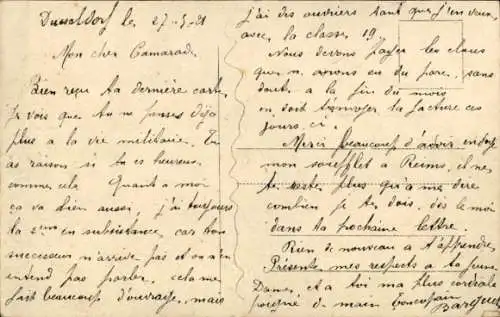 Dusseldorf le 27-5-21
Mon cher Camarade
Bien reçu ta dernière carte
je vois que tu ne penses déjà
plus a la vie militaire. Tu
as raison si tu es heureux
comme cela Quant a moi
ça va bien aussi, j'ai toujours
la 2eme en subsistance, car ton
successeur n'arrive pas et on n'en
entend pas parler, cela me
fait beaucoup d'ouvrage, mais
j'ai des ouvriers tant que j'en veux
avec la classe 19.
Nous devons payer les clous
que n. avons eu du parc, sans
doute a la fin du mois
on doit t'envoyer la facture ces
jours ci.
Merci beaucoup d'avoir
mon soufflet a Reims, il ne
te reste plus qu'a me dire
combien je te dois, dès le moi
dans ta prochaine lettre.
Rien de nouveau a t'apprendre
Présente mes respects a ta
Dame, et a toi ma plus cordiale
poignée de main